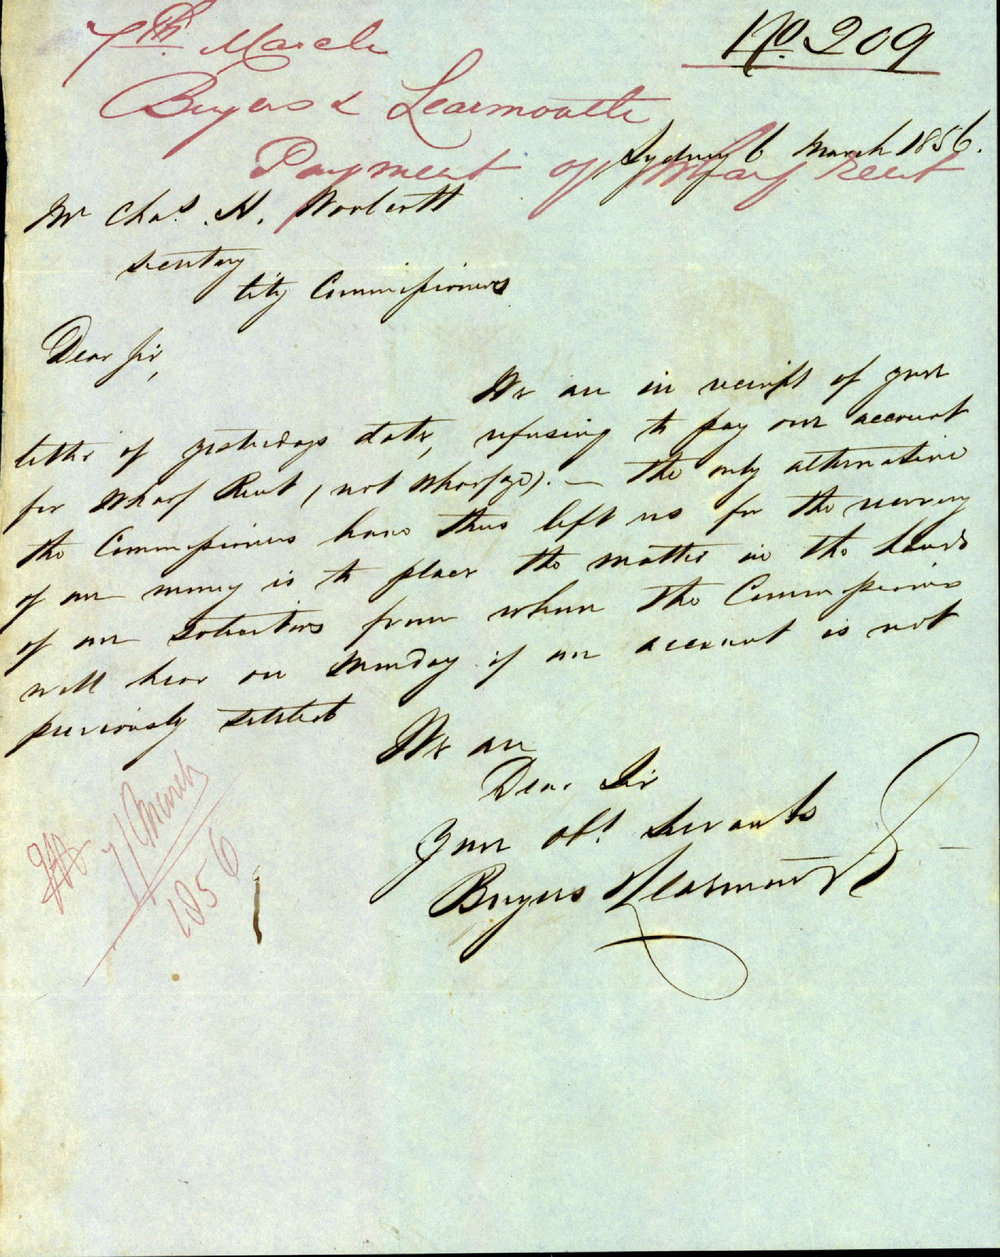 No. 209
7th March
Buyers & Learmonth
Payment of Wharf Rent
Sydney 6 March 1856.
Mr Chas. H. Woolcott
Secretary
City Commissioners
Dear Sir,
We are in receipt of your
letter of yesterdays date, refusing to pay our account
for Wharf Rent, (not Wharfage). — The only alternative
the Commissioners have thus left us for the recovery
of our money is to place the matter in the hands
of our Solicitors from whom the Commissioners
will hear on Monday if our account is not
previously settled
We are
Dear Sir
Your obt. Servants
Buyers & Learmonth
7/March
1856